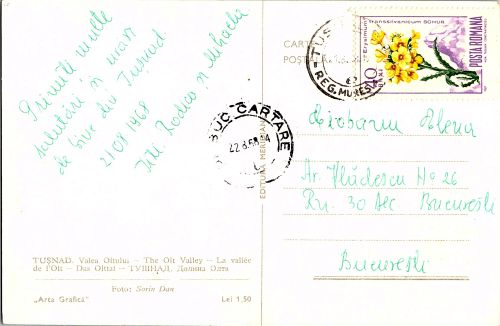 Primiti multe
salutări și urări
de bine din Tușnad
21 08 1968
Rodica și Mihaela
CARTE
POSTA
TUS
REG. MUREȘ
Erysimum Transsilvanicum SCHUR
40
BANI
POSTA ROMANA
BUC. CARTARE
22.8.68
EDITURA MERIDIANE
Elena
Ar. Vlădescu No 26
Rn. 30 Dec București
București
TUȘNAD. Valea Oltului — The Olt Valley — La vallée
de l'Olt — Das Olttal — ТУШНАД. Долина Олта
Foto: Sorin Dan
„Arta Grafică" Lei 1,50